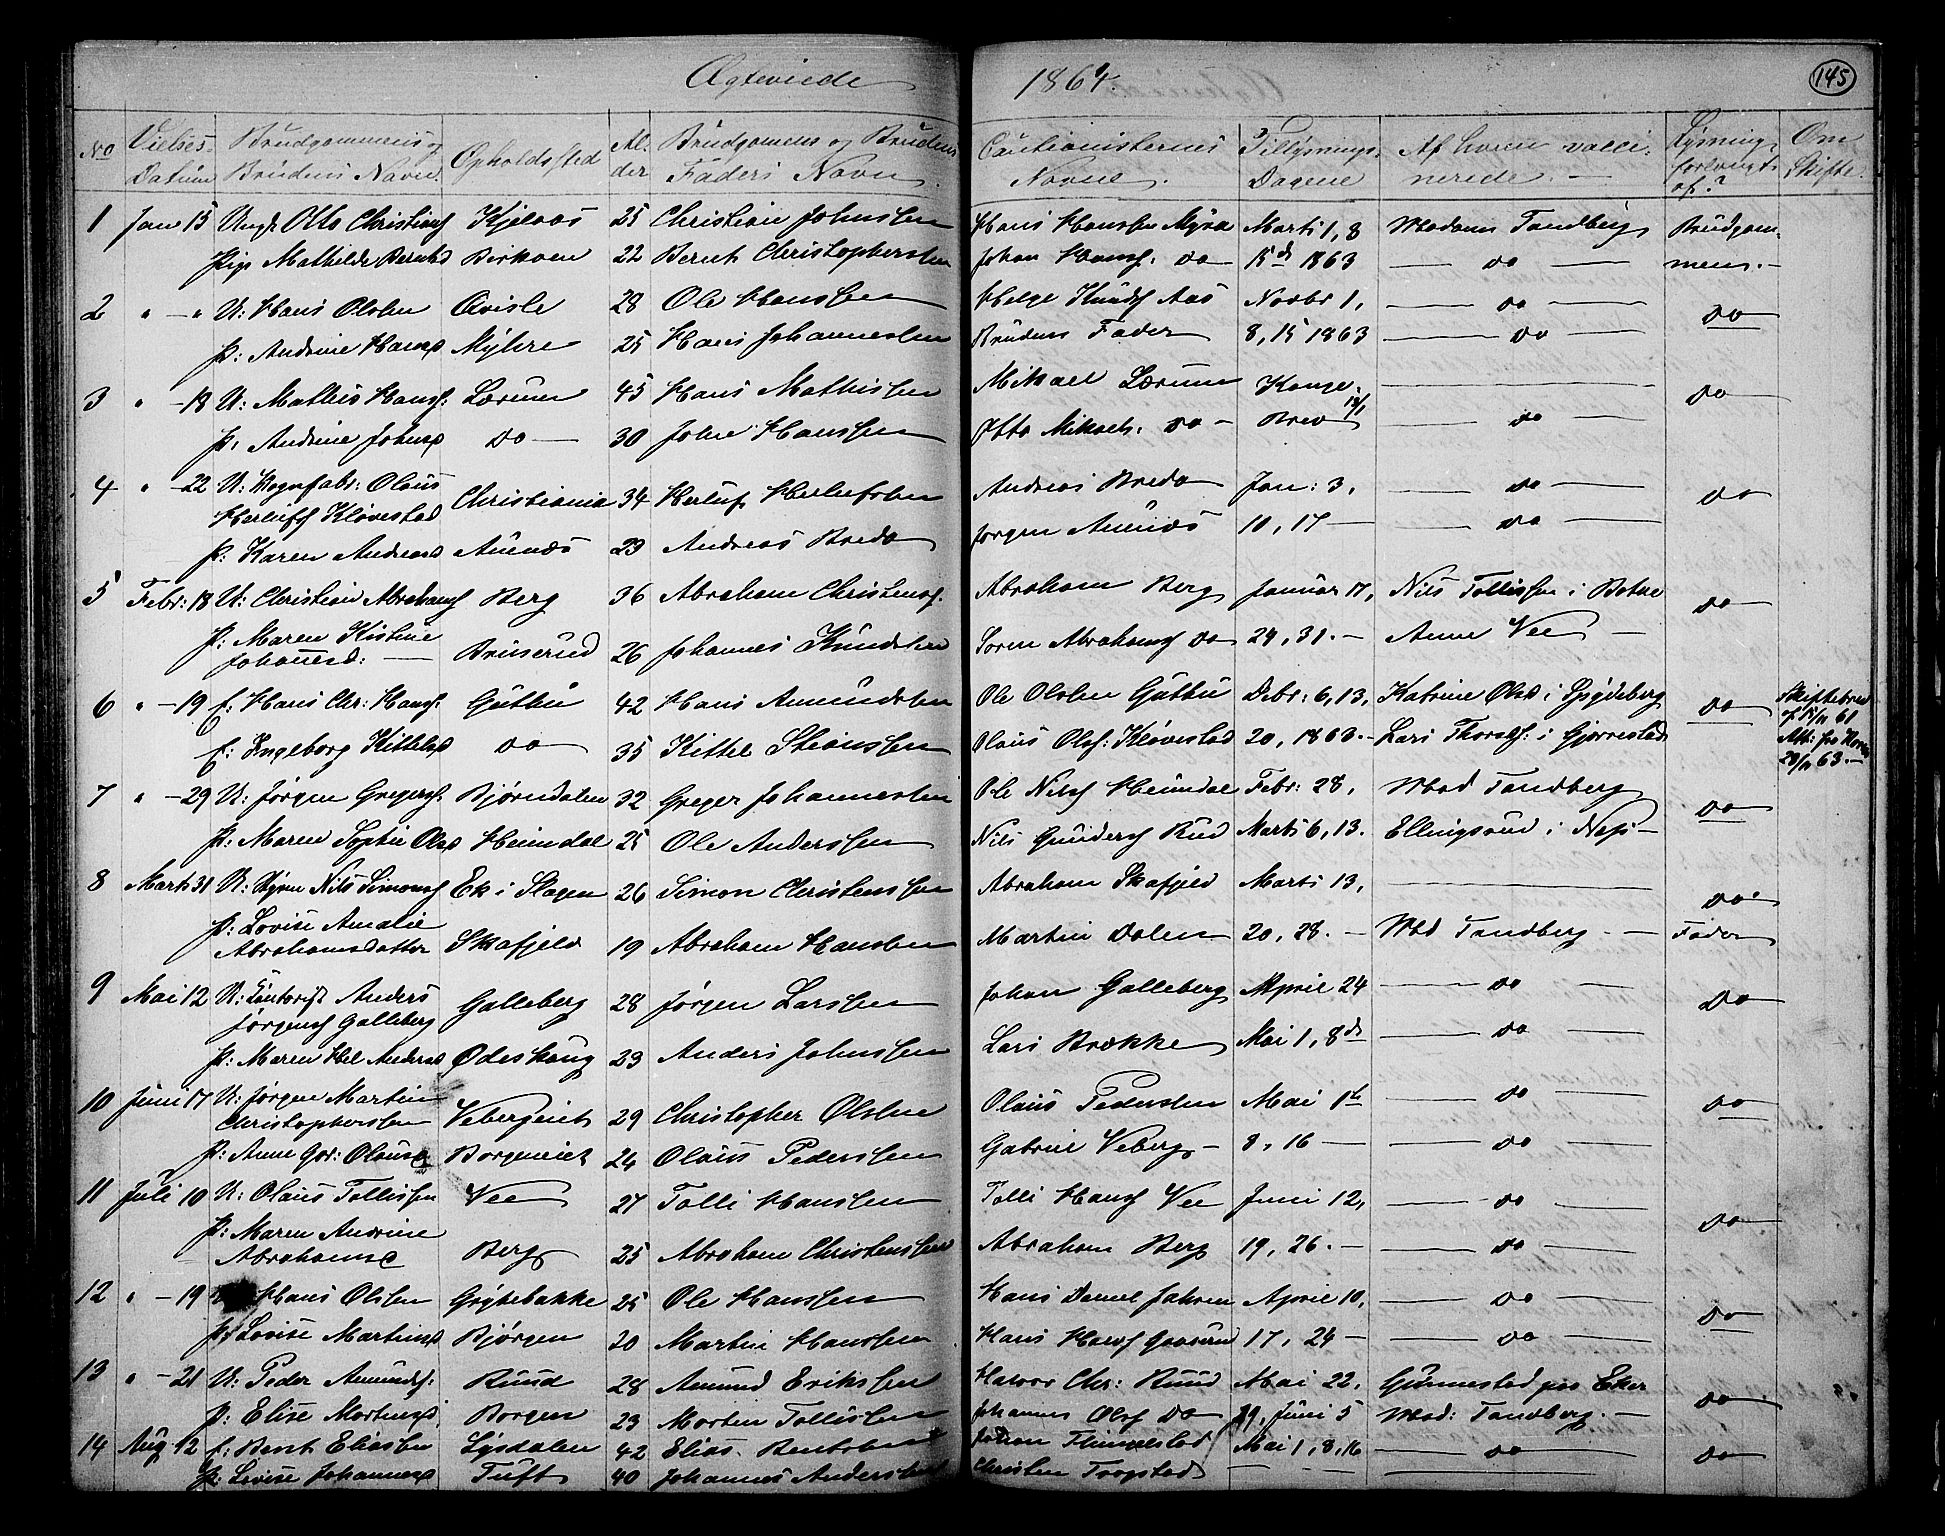 Ægteviede 1864. 145
No Vielses- Datum Brudgommens og Brudens Navn. Opholdsted Al- der Brudgomens og Brudens Faders Navn. Cautionisternes Navne. Tillysnings- Dagene Af hvem vacci- nerede. — Lysning forlangt af? Om Skifte.
1 Jan 15 Ungk Otto Christians Kjelaas 25 Christian Johnssen Hans Hanssen Myra Marts 1, 8 Madam Tandberg Brudgom-
Pige Mathilde Berntsd 22 Bernt Christophersen Johan Hanss. do 15d 1863 — do — men. —
2 " — " U: Hans Olsen Qvisle 28 Ole Hanssen Helge Knuds Aas Novbr 1, — do — do
P: Andrine Hansd Myhre 25 Hans Johannessen Brudens Fader 8, 15 1863 — do —
3 " — 18 U: Mathis Hanss: Lærum 45 Hans Mathissen Mikael Lærum Konge- — do
P: Andrine Johnsd do — 30 John Hanssen Otto Mikaels. do — Brev 13/1 — do —
4 " — 22 U: Vognfabr: Olaus Herlufs Kløvestad Christiania 34 Herluf Herlufsen Andreas Breda Jan: 3, — do — do
P: Karen Andreasd Auenæs 23 Andreas Breda Jørgen Auenæs 10, 17 — — do —
5 Febr: 18 U: Christian Abrahams Berg 36 Abraham Christenss. Abraham Berg Januar 17, Nils Tollissen i Botne do
P: Maren Kistine Johannesd: — Bruserud 26 Johannes Knudsen Søren Abrahams do 24, 31. — Anne Vee —
6 " — 19 E: Hans Chr: Hanss: Guttu 42 Hans Amundsen Ole Olsen Guttu Debr: 6, 13, Katrine Olsd i Spydeberg do Skiftebrev
E: Ingeborg Kittelsd do 35 Kittel Stianssen Olaus Ols: Kløvestad 20, 1863. — Lars Thorss: i Gjerrestad 61
63. —
7 " — 29 U: Jørgen Gregers. Bjørndalen 32 Greger Johannessen Ole Nils Heimdal Febr: 28, Mad Tandberg do
P: Maren Sophie Olsd Heimdal 25 Ole Anderssen Nils Gunders Rud Marts 6, 13. Ellingsrud i Næs —
8 Marts 31 U: Styrm Nils Simons Ek i Slagen 26 Simon Christenssen Abraham Skafjeld Marts 13, — do
P: Lovise Amalie Abrahamsdatter Skafjeld 19 Abraham Hanssen Martin Dalen 20, 28. — Mad Tandberg — Fader
9 Mai 12 U: Anders Jørgens Galleberg Galleberg 28 Jørgen Larssen Johan Galleberg April 24 — do — do
P: Maren Hel Andersd Ødeskaug 23 Anders Johnssen Lars Brække Mai 1, 8de — do —
10 Juni 17 U: Jørgen Martin Christophersen Vebergeiet 29 Christopher Olsen Olaus Pedersen Mai 1te — do — do
P: Anne Gor: Olausd Borgeneiet 24 Olaus Pederssen Gabriel Veberg — 8, 16 — — do —
11 Juli 10 U: Olaus Tollissen Vee 27 Tolli Hanssen Tolli Hans Vee Juni 12, — do — do
P: Maren Andrine Abrahamsd Berg 25 Abraham Christenssen Abraham Berg 19, 26. — — do —
12 " — 19 Hans Olssen Grytebakke 25 Ole Hanssen Hans Daniel Jahren April 10, — do — do
P: Lovise Martinsd Bjørgen 20 Martin Hanssen Hans Hans 17, 24 — — do —
13 " — 21 U: Peder Amunds: Ruud 28 Amund Erikssen Halvor Chr: Ruud Mai 22, Gunnestad paa Eker do
P: Elise Mortensd Borgen 23 Morten Tollissen Johannes Ols do 29, Juni 5 Mad: Tandberg. —
14 Aug 12 E: Bent Eliassen Lysdalen 42 Elias Bentsen Johan Himmelstad Mai 1, 8, 16 — do — do
P: Lovise Johannesd Tuft 40 Johannes Anderssen Christen Trogstad — —